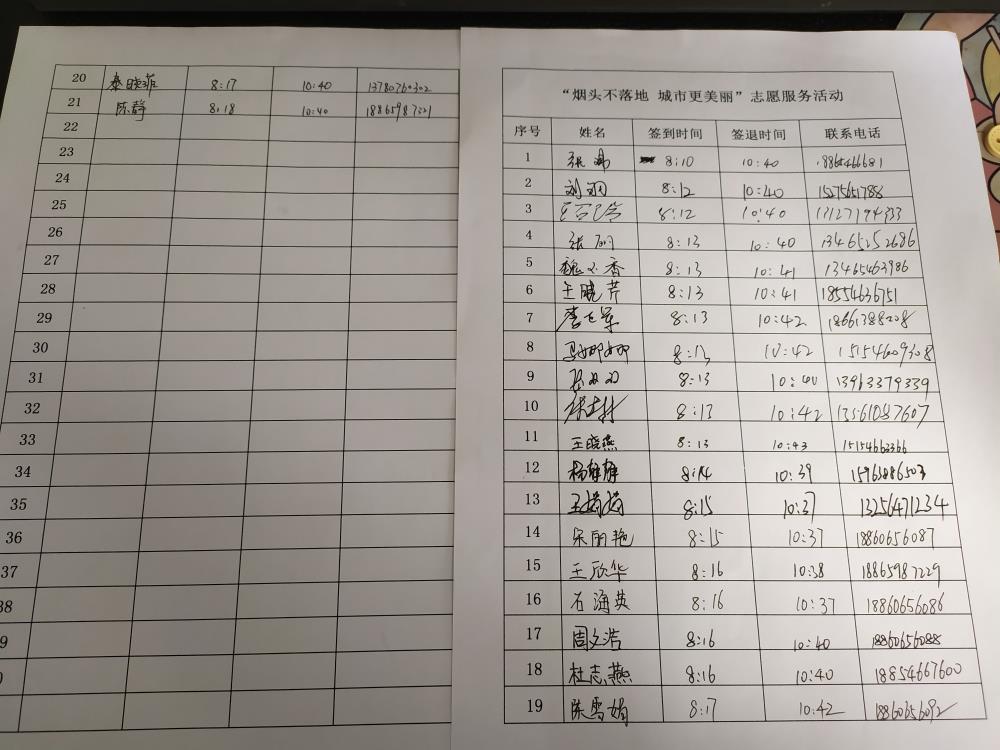 “烟头不落地 城市更美丽”志愿服务活动
序号 姓名 签到时间 签退时间 联系电话
1 张 8:10 10:40
2 刘 8:12 10:40
3 8:12 10:40
4 张 8:13 10:40 13465252686
5 魏 香 8:13 10:41 13465463986
6 王晓芹 8:13 10:41 18554636751
7 8:13 10:42 18661388208
8 马娜娜 8:13 10:42 15154609308
9 8:13 10:40 13963379339
10 8:13 10:42 13561087607
11 王晓燕 8:13 10:43
12 杨静静 8:14 10:39 15963886503
13 王娟娟 8:15 10:37 13256471234
14 宋丽艳 8:15 10:37 18860656087
15 王欣华 8:16 10:38 18865987229
16 石海英 8:16 10:37 18860656086
17 周文浩 8:16 10:40 18860656088
18 杜志燕 8:16 10:40 18854667600
19 陈雪娟 8:17 10:42 18860656092
20 秦晓菲 8:17 10:40 13780760302
21 陈静 8:18 10:40 18865987221
22
23
24
25
26
27
28
29
30
31
32
33
34
35
36
37
38
9